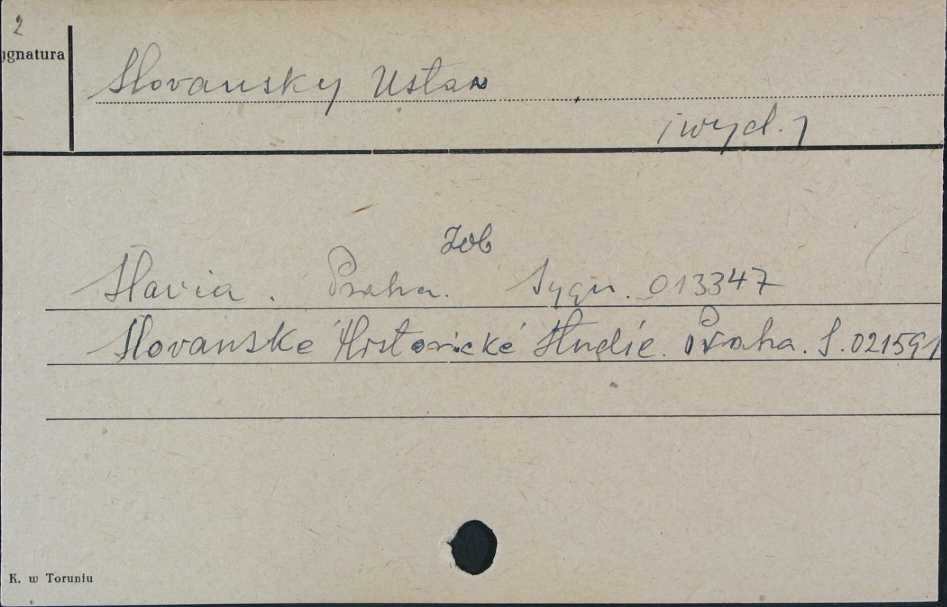 2
ygnatura
Slovansky Ustav
/wyd./
Zob
Slavia. Praha. Sygn. 013347
Slovanské Historické Studie. Praha. S. 021591
K. w Toruniu